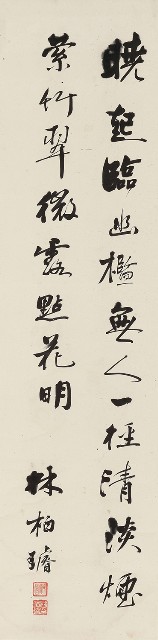 曉起臨幽檻無人一徑清淡煙
縈竹翠微露點花明
林柏璿